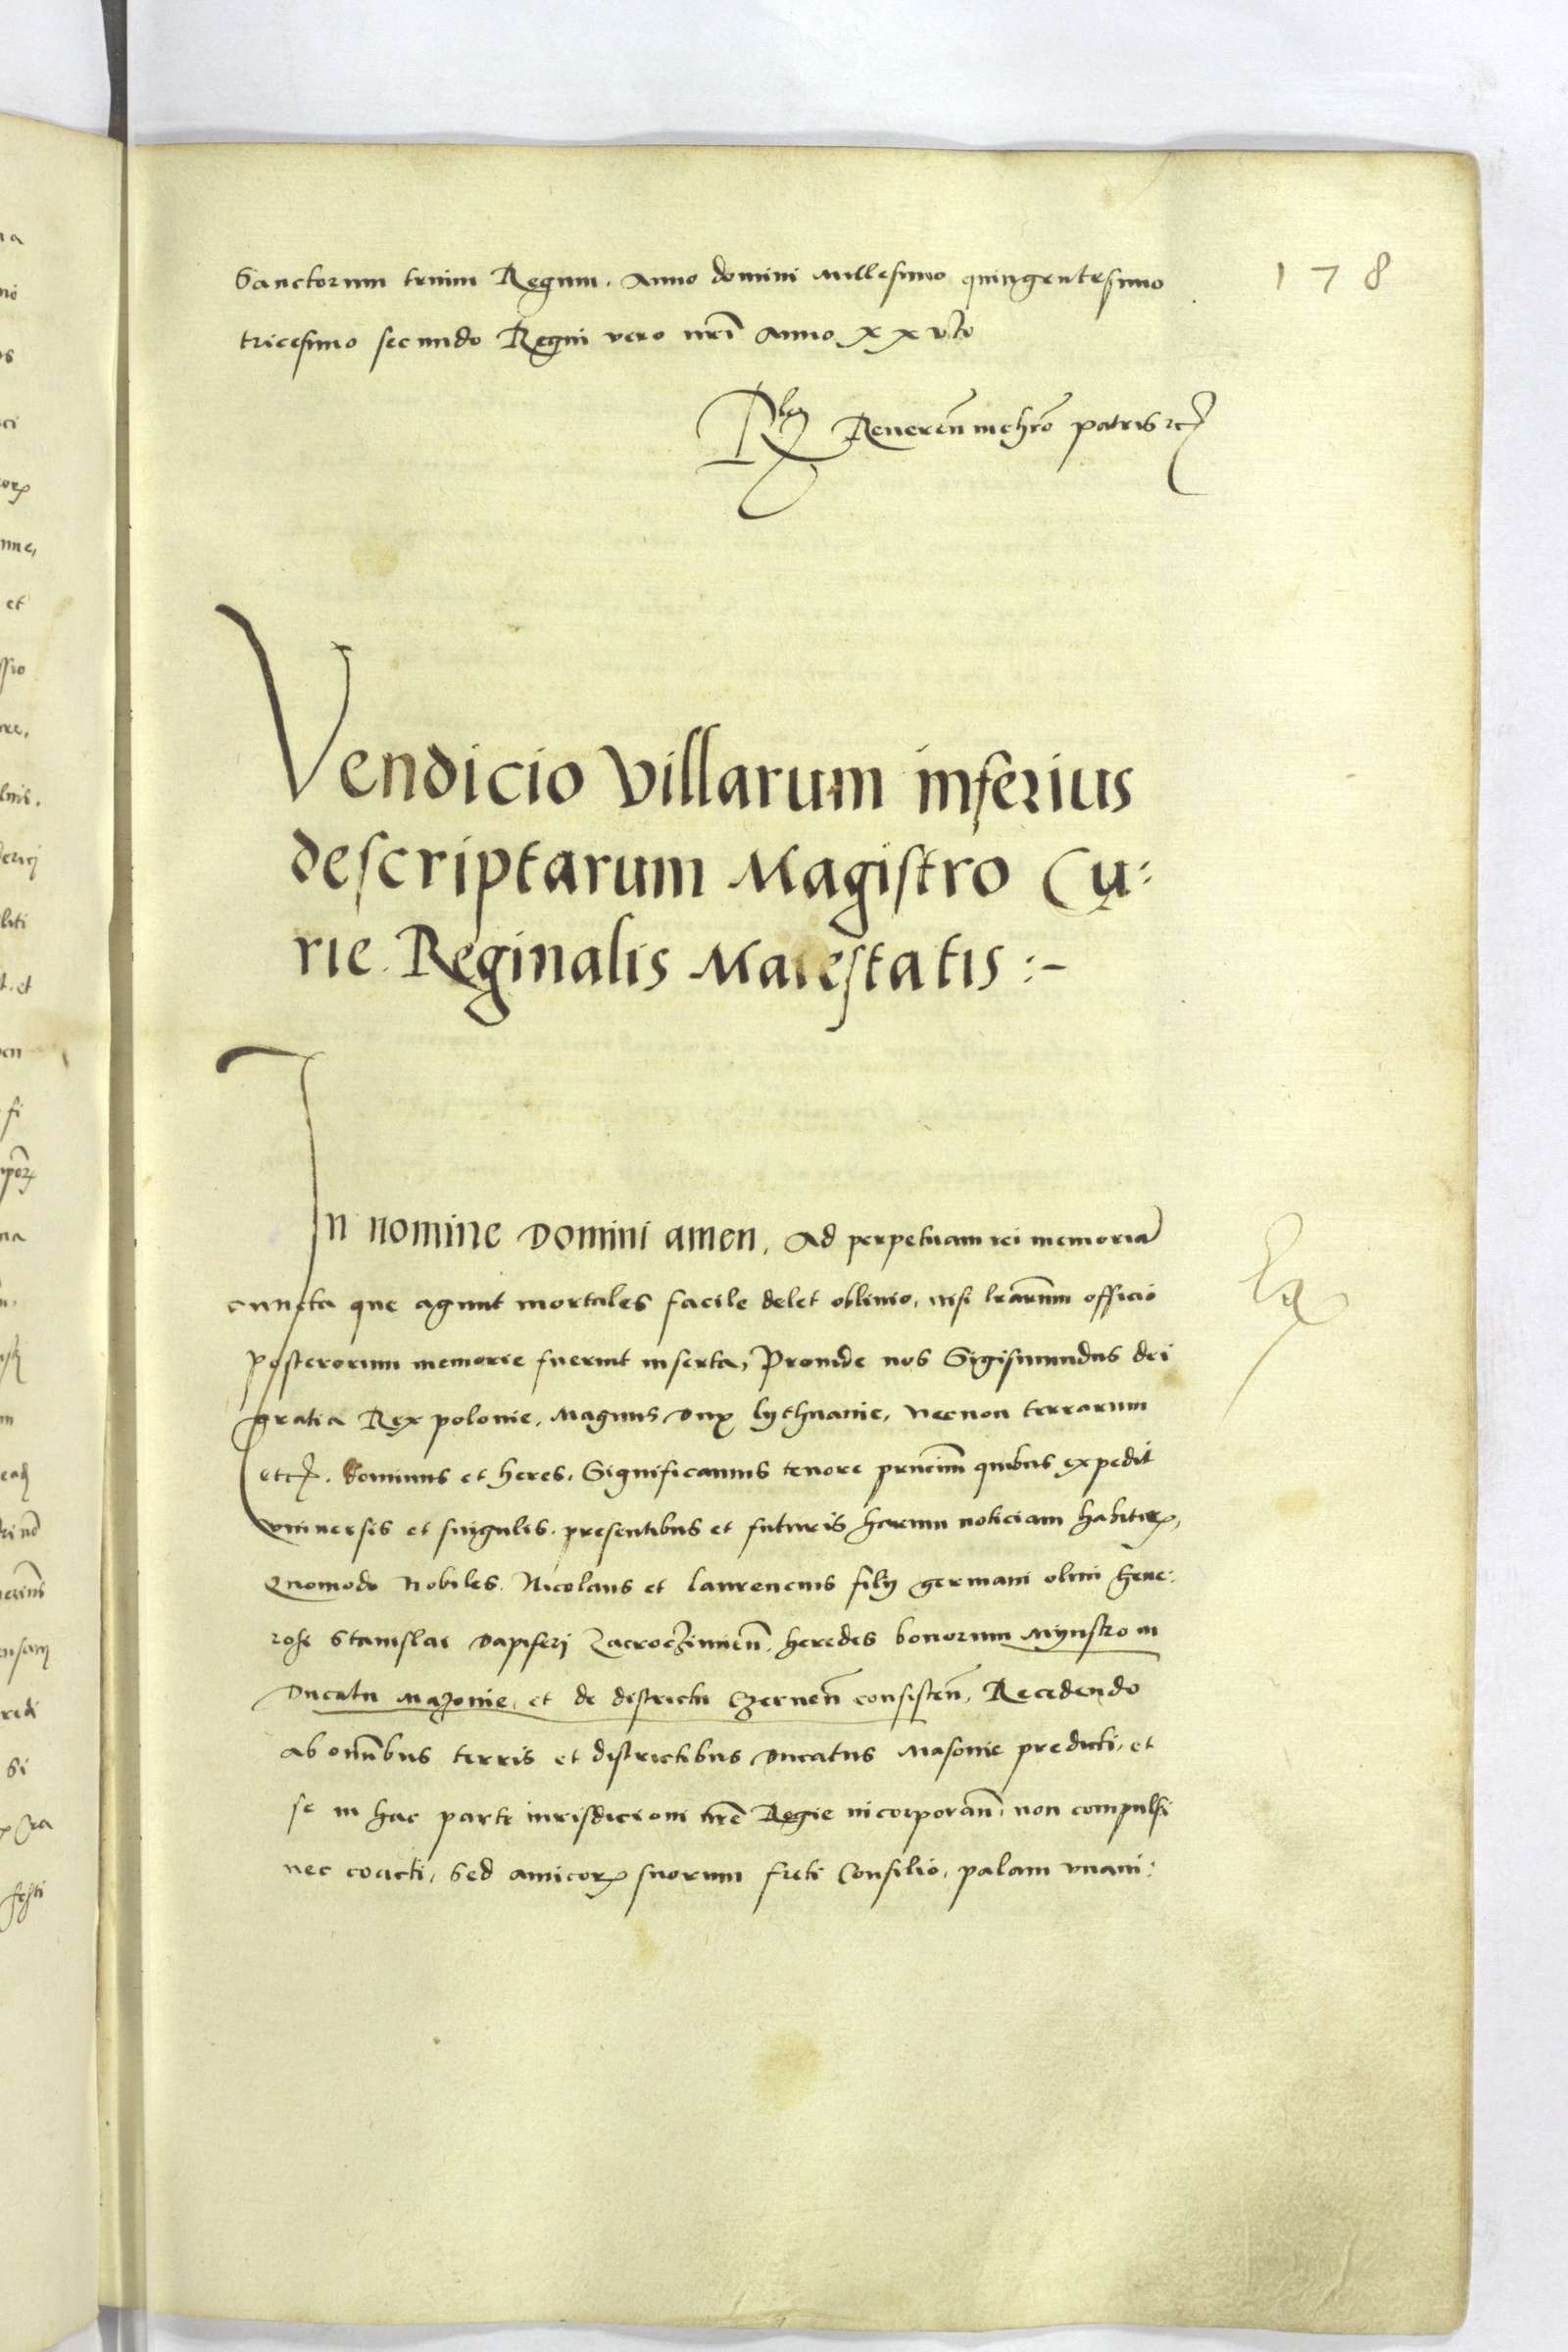 178
Sanctorum trium Regum. Anno domini millesimo quingentesimo
tricesimo secundo Regni vero nrī Anno xxvto
Reveren̄ in chrō patris etc
Vendicio villarum inferius
descriptarum Magistro Cu:
rie Reginalis Maiestatis :-
In nomine Domini amen. Ad perpetuam rei memoriā
cuncta que agunt mortales facile delet oblivio, nisi lrārum officio
posterorum memorie fuerint inserta, Proinde nos Sigismundus dei
gratia Rex polonie, Magnus Dux lythuanie, necnon terrarum
etc. dominus et heres. Significamus tenore prncium̄ quibus expedit
vniversis et singulis, presentibus et futuris harum noticiam habitur,
Quomodo Nobiles Nicolaus et laurencius filij germani olim hene:
rosi Stanislai Dapiferi Zacroczimien̄, heredes bonorum Mynstro in
Ducatu Mazovie, et de districtu Czernen̄ consisten̄, Recedendo
ab omībus terris et districtibus Ducatus Masovie predicti, et
se in hac parte iurisdicioni nrē Regie incorporan̄, non compulsi
nec coacti, Sed amicorum suorum freti Consilio, palam vnani: